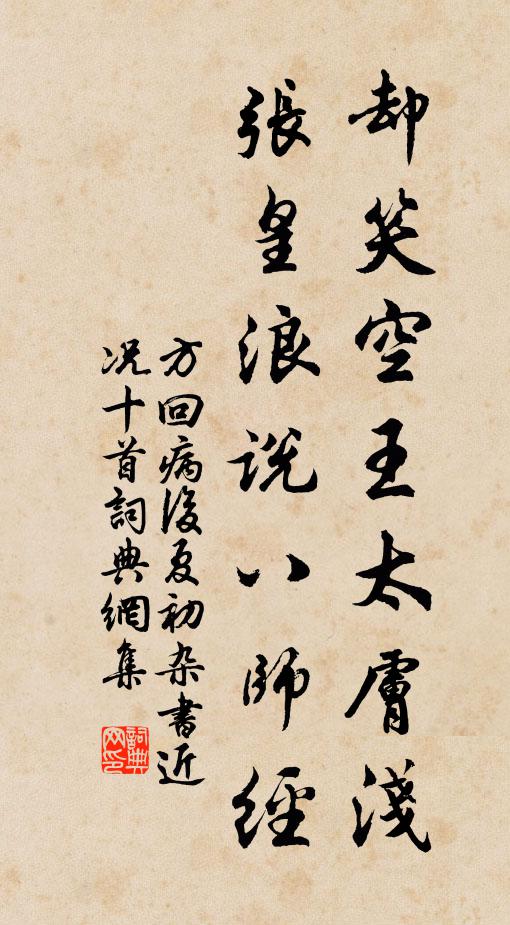 却笑空王太膚淺
張皇浪説八師經
方回病後夏初杂書近
况十首詞典網集
詞典网印